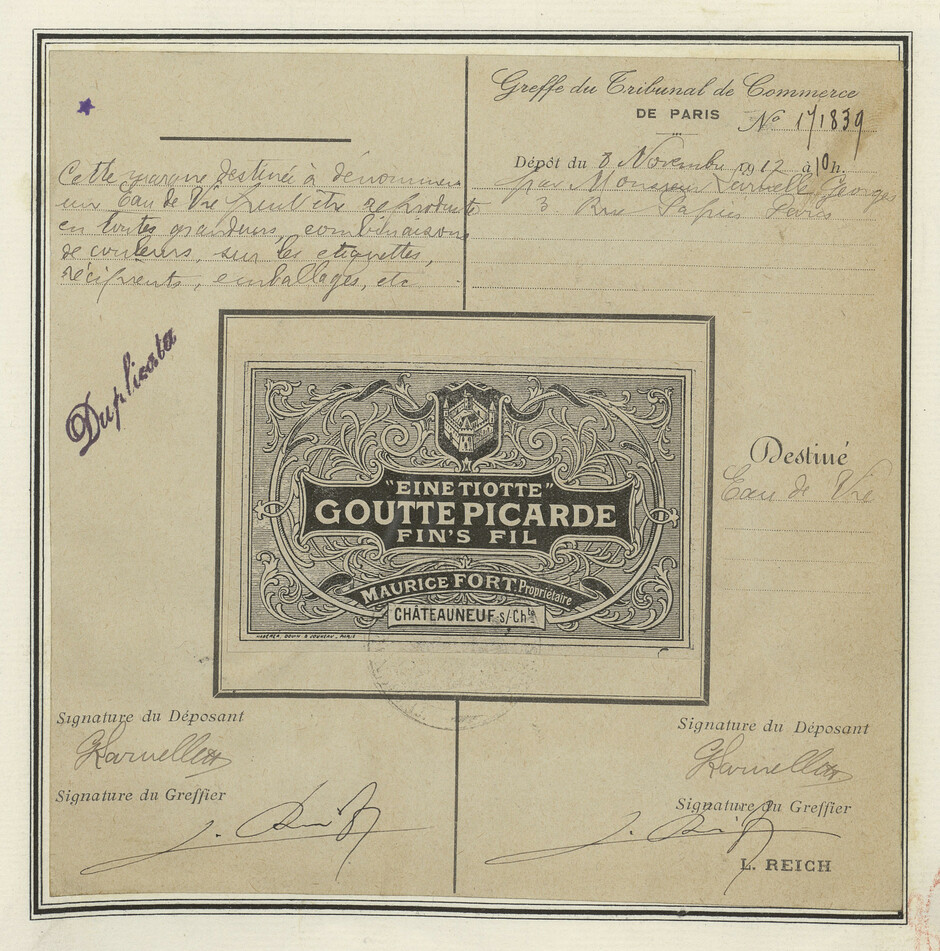 Greffe du Tribunal de Commerce
DE PARIS
No 171839
Dépôt du 8 Novembre 1912 à 10h.
par Monsieur Georges
3 Rue Paris
Cette marque destinée à dénommer
une Eau de Vie peut être reproduite
en toutes grandeurs, combinaisons
de couleurs, sur les etiquettes,
récipients, emballages, etc
Duplicata
"EINE TIOTTE"
GOUTTE PICARDE
FIN'S FIL
MAURICE FORT, Propriétaire
CHÂTEAUNEUF s/- Chte
Destiné
Eau de Vie
Signature du Déposant
Signature du Greffier
Signature du Déposant
Signature du Greffier
L. REICH